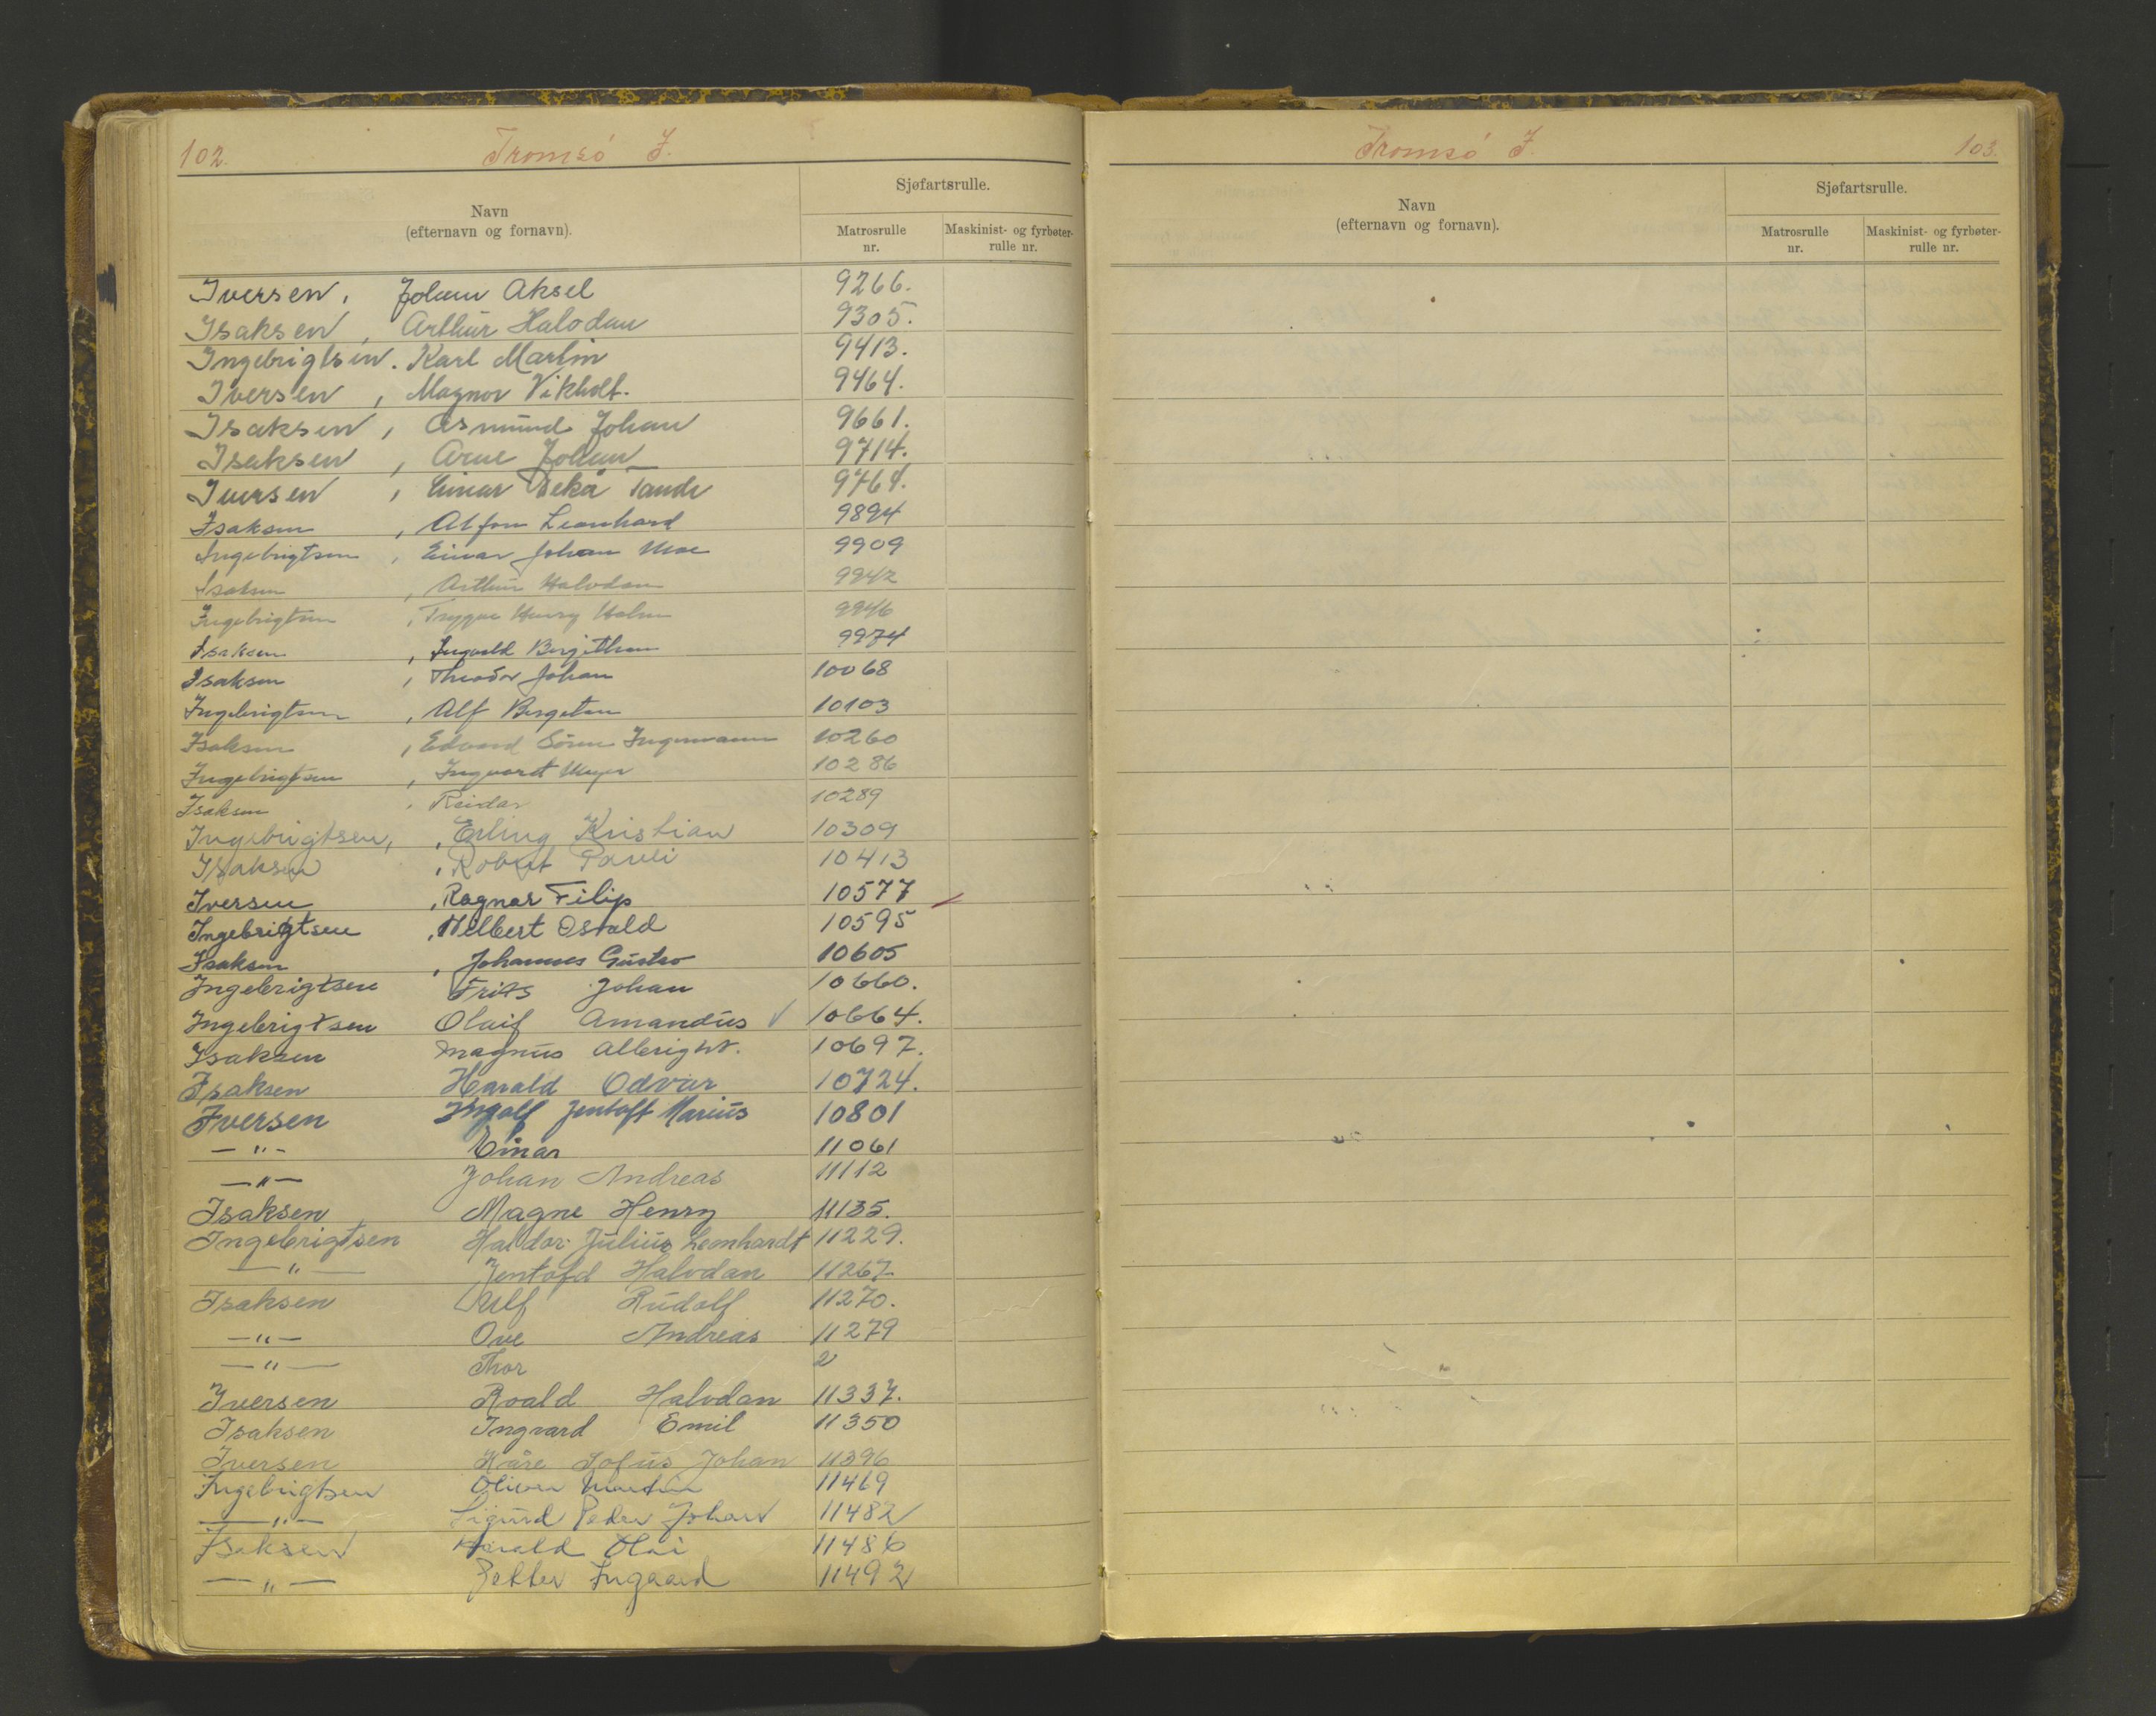 102.
Tromsö I.
Navn
(efternavn og fornavn).
Sjøfartsrulle.
Matrosrulle
nr.
Maskinist- og fyrbøter-
rulle nr.
Iversen, Johan Aksel 9266.
Isaksen, Arthur Halvdan 9305.
Ingebrigtsen. Karl Martin 9413.
Iversen, Magnor Vikholt. 9464.
Isaksen, Asmund Johan 9661.
Isaksen, Arne Johan 9714.
Iversen, Einar 9764.
Isaksen, Alfon Leonhard 9894
Ingebrigtsen, Einar Johan Moe 9909
Isaksen, Arthur Halvdan 9942
Ingebrigtsen, Trygve Henry Holm 9946
Isaksen, Ingvald Bergithon 9974
Isaksen, Theodor Johan 10068
Ingebrigtsen, Alf Bergeton 10103
Isaksen, Edvard Sören Ingemann 10260
Ingebrigtsen, Ingvart Meyer 10286
Isaksen, Reidar 10289
Ingebrigtsen, , Erling Kristian 10309
Isaksen, Robert Pauli 10413
Iversen, Ragnar Filip 10577
Ingebrigtsen, Hilbert Osvald 10595
Isaksen, Johannes Gustav 10605
Ingebrigtsen Frits Johan 10660.
Ingebrigtsen Olaif Amandus √ 10664.
Isaksen Magnus Albright. 10697.
Isaksen Harald Odvar 10724.
Iversen Ingolf Jentoft Marius 10801
— " — Einar 11061
— " — Johan Andreas 11112
Isaksen Magne Henry 11135.
Ingebrigtsen Haldor Julius Leonhardt 11229.
— " — Jentofd Halvdan 11267
Isaksen Ulf Rudolf 11270.
— " — Ove Andreas 11279
— " — Thor 2
Iversen Roald Halvdan 11337.
Isaksen Ingvard Emil 11350
Iversen Kåre Jofus Johan 11396
Ingebrigtsen Oliver Martin 11469
— " — Sigurd Peder Johan 11482
Isaksen Harald Olai 11486
— " — Petter Ingvard 11492
Tromsö I.
103.
Navn
(efternavn og fornavn).
Sjøfartsrulle.
Matrosrulle
nr.
Maskinist- og fyrbøter-
rulle nr.